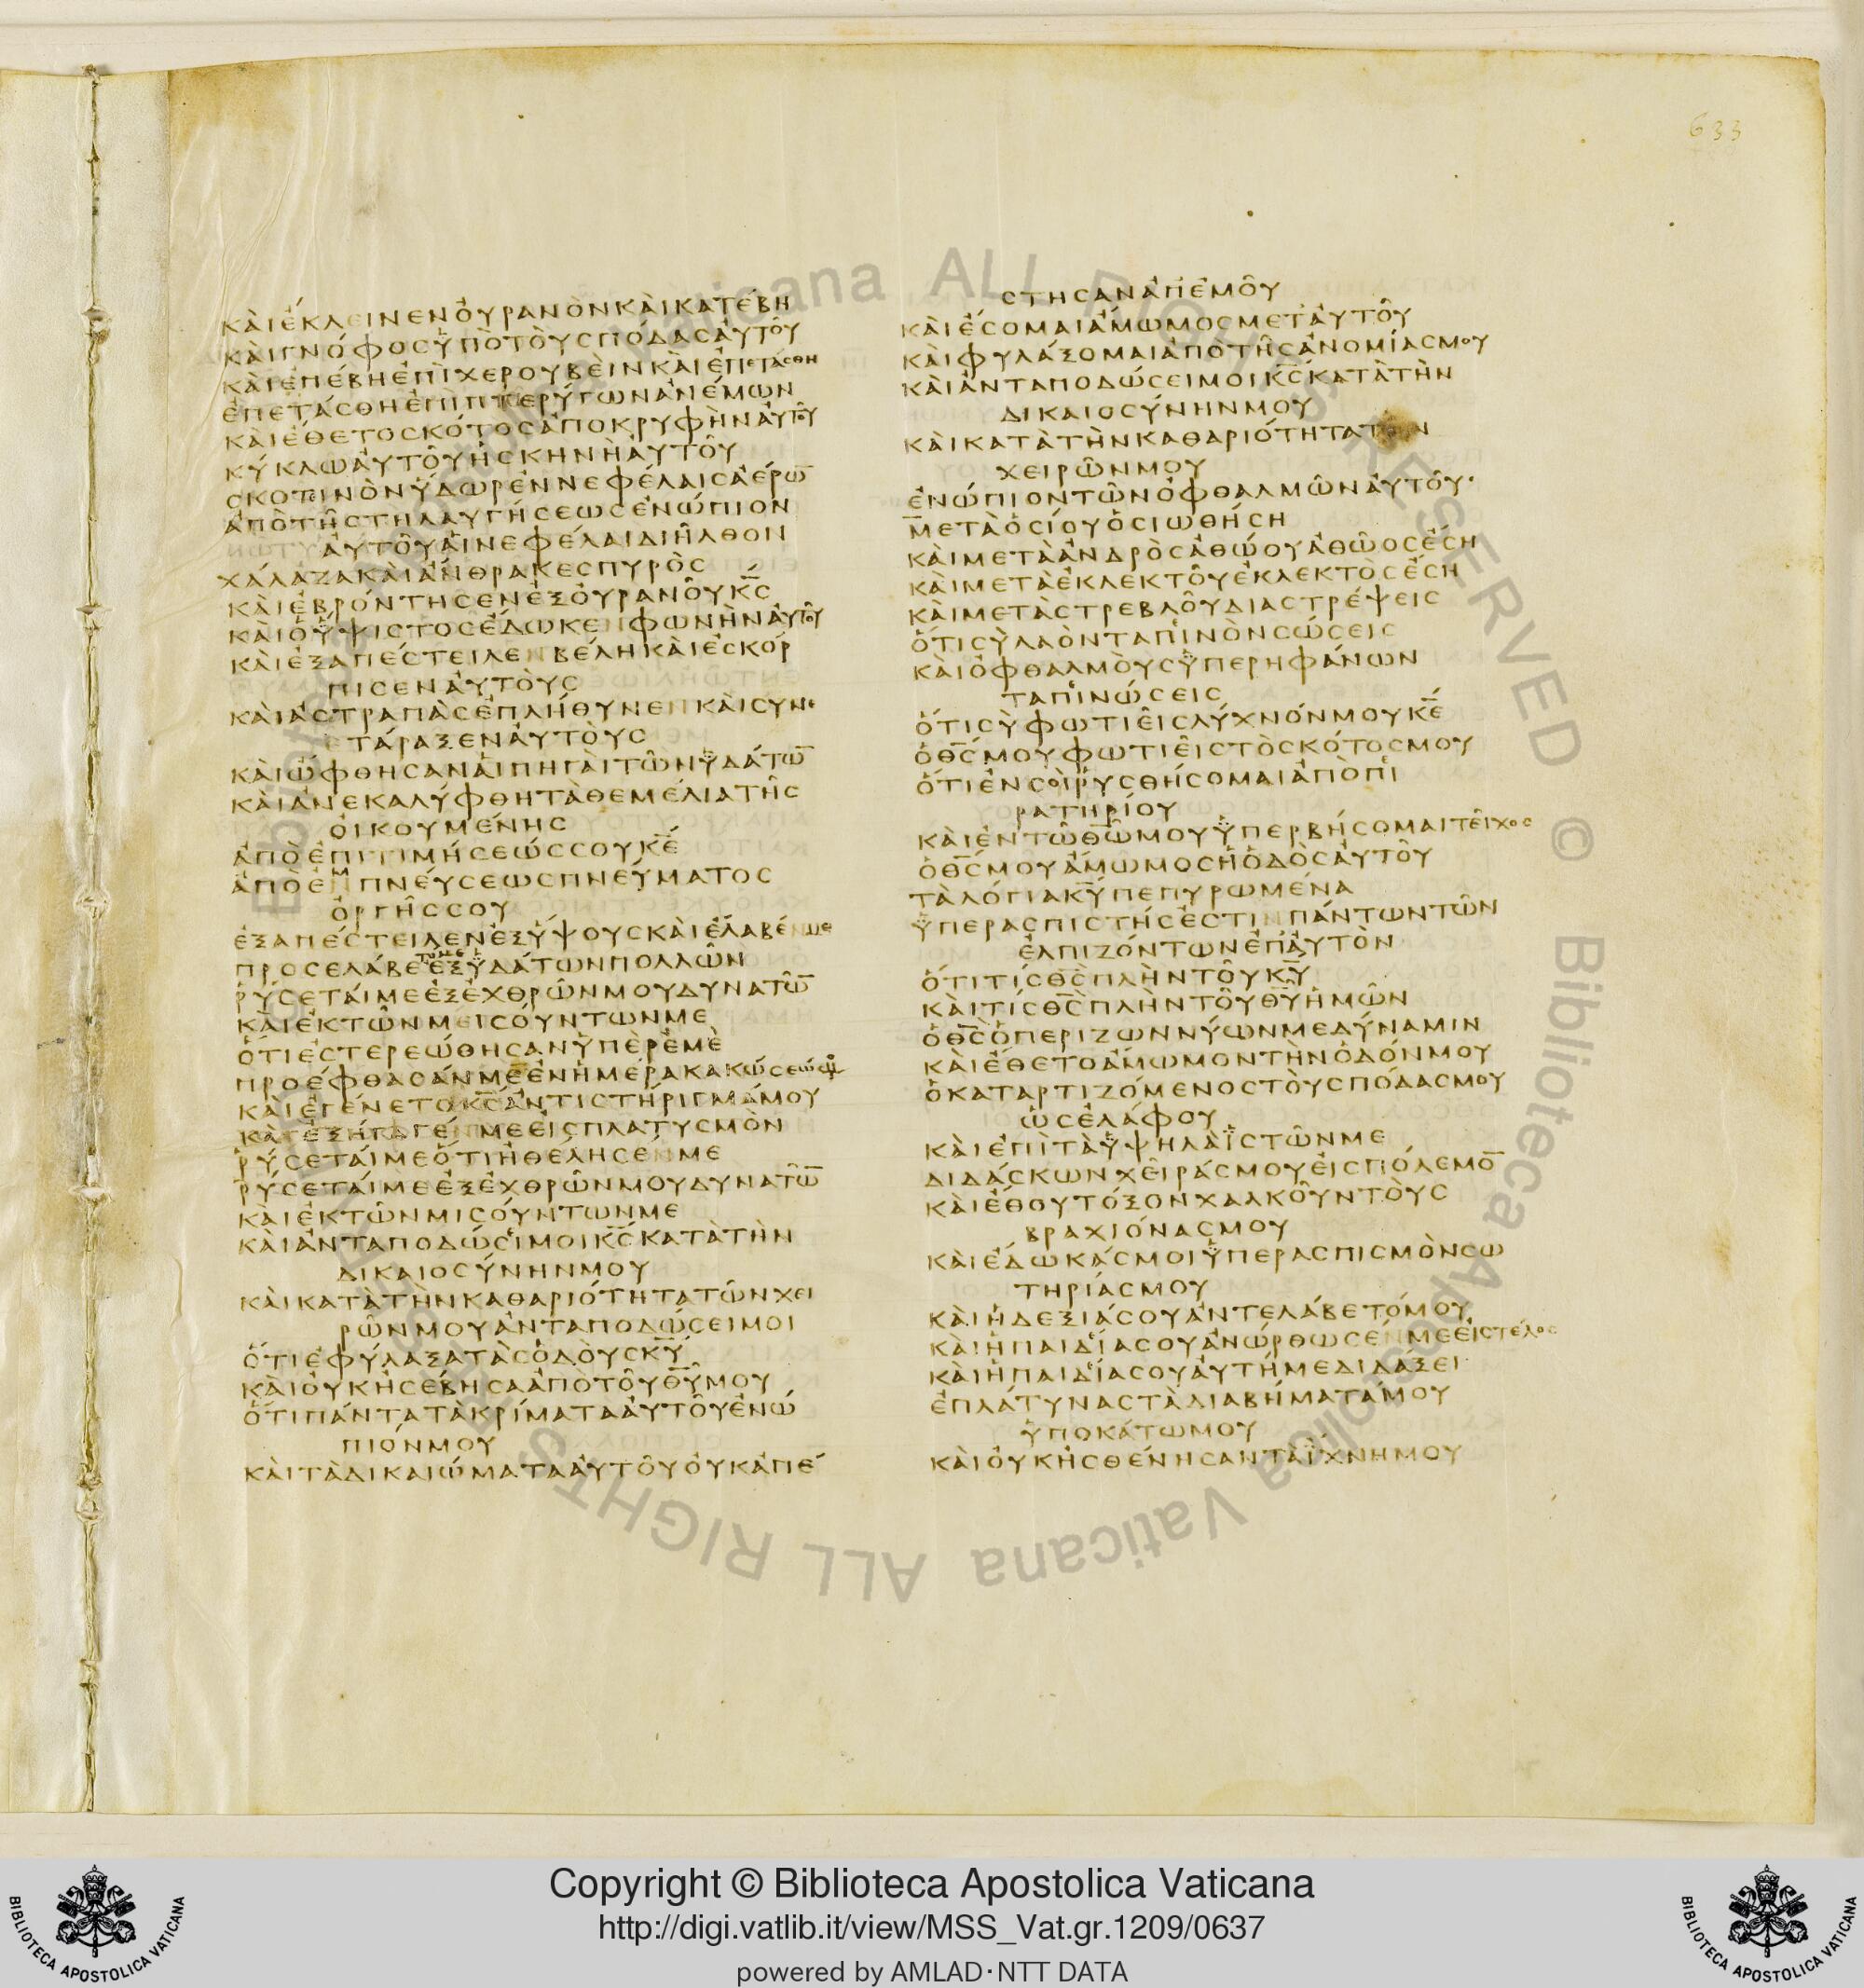 633
ΚΑΙΕΚΛΕΙΝΕΝΟΥΡΑΝΟΝΚΑΙΚΑΤΕΒΗ
ΚΑΙΓΝΟΦΟΣΥΠΟΤΟΥΣΠΟΔΑΣΑΥΤΟΥ
ΚΑΙΕΠΕΒΗΕΠΙΧΕΡΟΥΒΕΙΝΚΑΙΕΠΕΤΑΣΘΗ
ΕΠΕΤΑΣΘΗΕΠΙΠΤΕΡΥΓΩΝΑΝΕΜΩΝ
ΚΑΙΕΘΕΤΟΣΚΟΤΟΣΑΠΟΚΡΥΦΗΝΑΥΤΟΥ
ΚΥΚΛΩΑΥΤΟΥΗΣΚΗΝΗΑΥΤΟΥ
ΣΚΟΤΕΙΝΟΝΥΔΩΡΕΝΝΕΦΕΛΑΙΣΑΕΡΩ̅
ΑΠΟΤΗΣΤΗΛΑΥΓΗΣΕΩΣΕΝΩΠΙΟΝ
ΑΥΤΟΥΑΙΝΕΦΕΛΑΙΔΙΗΛΘΟΝ
ΧΑΛΑΖΑΚΑΙΑΝΘΡΑΚΕΣΠΥΡΟΣ
ΚΑΙΕΒΡΟΝΤΗΣΕΝΕΞΟΥΡΑΝΟΥΚ̅Σ̅
ΚΑΙΟΥΨΙΣΤΟΣΕΔΩΚΕΝΦΩΝΗΝΑΥΤΟΥ
ΚΑΙΕΞΑΠΕΣΤΕΙΛΕΝΒΕΛΗΚΑΙΕΣΚΟΡ
ΠΙΣΕΝΑΥΤΟΥΣ
ΚΑΙΑΣΤΡΑΠΑΣΕΠΛΗΘΥΝΕΝΚΑΙΣΥΝ
ΕΤΑΡΑΞΕΝΑΥΤΟΥΣ
ΚΑΙΩΦΘΗΣΑΝΑΙΠΗΓΑΙΤΩΝΥΔΑΤΩ̅
ΚΑΙΑΝΕΚΑΛΥΦΘΗΤΑΘΕΜΕΛΙΑΤΗΣ
ΟΙΚΟΥΜΕΝΗΣ
ΑΠΟΕΠΙΤΙΜΗΣΕΩΣΣΟΥΚ̅Ε̅
ΑΠΟΕΝΠΝΕΥΣΕΩΣΠΝΕΥΜΑΤΟΣ
ΟΡΓΗΣΣΟΥ
ΕΞΑΠΕΣΤΕΙΛΕΝΕΞΥΨΟΥΣΚΑΙΕΛΑΒΕΝΜΕ
ΠΡΟΣΕΛΑΒΕΤΟΜΕΕΞΥΔΑΤΩΝΠΟΛΛΩΝ
ΡΥΣΕΤΑΙΜΕΕΞΕΧΘΡΩΝΜΟΥΔΥΝΑΤΩ̅
ΚΑΙΕΚΤΩΝΜΕΙΣΟΥΝΤΩΝΜΕ
ΟΤΙΕΣΤΕΡΕΩΘΗΣΑΝΥΠΕΡΕΜΕ
ΠΡΟΕΦΘΑΣΑΝΜΕΕΝΗΜΕΡΑΚΑΚΩΣΕΩΣ
ΚΑΙΕΓΕΝΕΤΟΚ̅Σ̅ΑΝΤΙΣΤΗΡΙΓΜΑΜΟΥ
ΚΑΙΕΞΗΓΑΓΕΝΜΕΕΙΣΠΛΑΤΥΣΜΟΝ
ΡΥΣΕΤΑΙΜΕΟΤΙΗΘΕΛΗΣΕΝΜΕ
ΡΥΣΕΤΑΙΜΕΕΞΕΧΘΡΩΝΜΟΥΔΥΝΑΤΩ̅
ΚΑΙΕΚΤΩΝΜΙΣΟΥΝΤΩΝΜΕ
ΚΑΙΑΝΤΑΠΟΔΩΣΙΜΟΙΚ̅Σ̅ΚΑΤΑΤΗΝ
ΔΙΚΑΙΟΣΥΝΗΝΜΟΥ
ΚΑΙΚΑΤΑΤΗΝΚΑΘΑΡΙΟΤΗΤΑΤΩΝΧΕΙ
ΡΩΝΜΟΥΑΝΤΑΠΟΔΩΣΕΙΜΟΙ
ΟΤΙΕΦΥΛΑΞΑΤΑΣΟΔΟΥΣΚ̅Υ̅
ΚΑΙΟΥΚΗΣΕΒΗΣΑΑΠΟΤΟΥΘ̅Υ̅ΜΟΥ
ΟΤΙΠΑΝΤΑΤΑΚΡΙΜΑΤΑΑΥΤΟΥΕΝΩ
ΠΙΟΝΜΟΥ
ΚΑΙΤΑΔΙΚΑΙΩΜΑΤΑΑΥΤΟΥΟΥΚΑΠΕ
ΣΤΗΣΑΝΑΠΕΜΟΥ
ΚΑΙΕΣΟΜΑΙΑΜΩΜΟΣΜΕΤΑΥΤΟΥ
ΚΑΙΦΥΛΑΞΟΜΑΙΑΠΟΤΗΣΑΝΟΜΙΑΣΜΟΥ
ΚΑΙΑΝΤΑΠΟΔΩΣΕΙΜΟΙΚ̅Σ̅ΚΑΤΑΤΗΝ
ΔΙΚΑΙΟΣΥΝΗΝΜΟΥ
ΚΑΙΚΑΤΑΤΗΝΚΑΘΑΡΙΟΤΗΤΑΤΩΝ
ΧΕΙΡΩΝΜΟΥ
ΕΝΩΠΙΟΝΤΩΝΟΦΘΑΛΜΩΝΑΥΤΟΥ·
ΜΕΤΑΟΣΙΟΥΟΣΙΩΘΗΣΗ
ΚΑΙΜΕΤΑΑΝΔΡΟΣΑΘΩΟΥΑΘΩΟΣΕΣΗ
ΚΑΙΜΕΤΑΕΚΛΕΚΤΟΥΕΚΛΕΚΤΟΣΕΣΗ
ΚΑΙΜΕΤΑΣΤΡΕΒΛΟΥΔΙΑΣΤΡΕΨΕΙΣ
ΟΤΙΣΥΛΑΟΝΤΑΠΙΝΟΝΣΩΣΕΙΣ
ΚΑΙΟΦΘΑΛΜΟΥΣΥΠΕΡΗΦΑΝΩΝ
ΤΑΠΙΝΩΣΕΙΣ
ΟΤΙΣΥΦΩΤΙΕΙΣΛΥΧΝΟΝΜΟΥΚ̅Ε̅
ΟΘ̅Σ̅ΜΟΥΦΩΤΙΕΙΣΤΟΣΚΟΤΟΣΜΟΥ
ΟΤΙΕΝΣΟΙΡΥΣΘΗΣΟΜΑΙΑΠΟΠΙ
ΡΑΤΗΡΙΟΥ
ΚΑΙΕΝΤΩΘ̅Ω̅ΜΟΥΥΠΕΡΒΗΣΟΜΑΙΤΕΙΧΟΣ
ΟΘ̅Σ̅ΜΟΥΑΜΩΜΟΣΗΟΔΟΣΑΥΤΟΥ
ΤΑΛΟΓΙΑΚ̅Υ̅ΠΕΠΥΡΩΜΕΝΑ
ΥΠΕΡΑΣΠΙΣΤΗΣΕΣΤΙΝΠΑΝΤΩΝΤΩΝ
ΕΛΠΙΖΟΝΤΩΝΕΠΑΥΤΟΝ
ΟΤΙΤΙΣΘ̅Σ̅ΠΛΗΝΤΟΥΚ̅Υ̅
ΚΑΙΤΙΣΘ̅Σ̅ΠΛΗΝΤΟΥΘ̅Υ̅ΗΜΩΝ
ΟΘ̅Σ̅ΟΠΕΡΙΖΩΝΝΥΩΝΜΕΔΥΝΑΜΙΝ
ΚΑΙΕΘΕΤΟΑΜΩΜΟΝΤΗΝΟΔΟΝΜΟΥ
ΟΚΑΤΑΡΤΙΖΟΜΕΝΟΣΤΟΥΣΠΟΔΑΣΜΟΥ
ΩΣΕΛΑΦΟΥ
ΚΑΙΕΠΙΤΑΥΨΗΛΑΙΣΤΩΝΜΕ
ΔΙΔΑΣΚΩΝΧΕΙΡΑΣΜΟΥΕΙΣΠΟΛΕΜΟ̅
ΚΑΙΕΘΟΥΤΟΞΟΝΧΑΛΚΟΥΝΤΟΥΣ
ΒΡΑΧΙΟΝΑΣΜΟΥ
ΚΑΙΕΔΩΚΑΣΜΟΙΥΠΕΡΑΣΠΙΣΜΟΝΣΩ
ΤΗΡΙΑΣΜΟΥ
ΚΑΙΗΔΕΞΙΑΣΟΥΑΝΤΕΛΑΒΕΤΟΜΟΥ
ΚΑΙΗΠΑΙΔΙΑΣΟΥΑΝΩΡΘΩΣΕΝΜΕΕΙΣΤΕΛΟΣ
ΚΑΙΗΠΑΙΔΙΑΣΟΥΑΥΤΗΜΕΔΙΔΑΞΕΙ
ΕΠΛΑΤΥΝΑΣΤΑΔΙΑΒΗΜΑΤΑΜΟΥ
ΥΠΟΚΑΤΩΜΟΥ
ΚΑΙΟΥΚΗΣΘΕΝΗΣΑΝΤΑΙΧΝΗΜΟΥ
Biblioteca Apostolica Vaticana ALL RIGHTS RESERVED © Biblioteca Apostolica Vaticana ALL RIGHTS RESERVED ©
BIBLIOTECA APOSTOLICA VATICANA
Copyright © Biblioteca Apostolica Vaticana
http://digi.vatlib.it/view/MSS_Vat.gr.1209/0637
powered by AMLAD·NTT DATA
BIBLIOTECA APOSTOLICA VATICANA